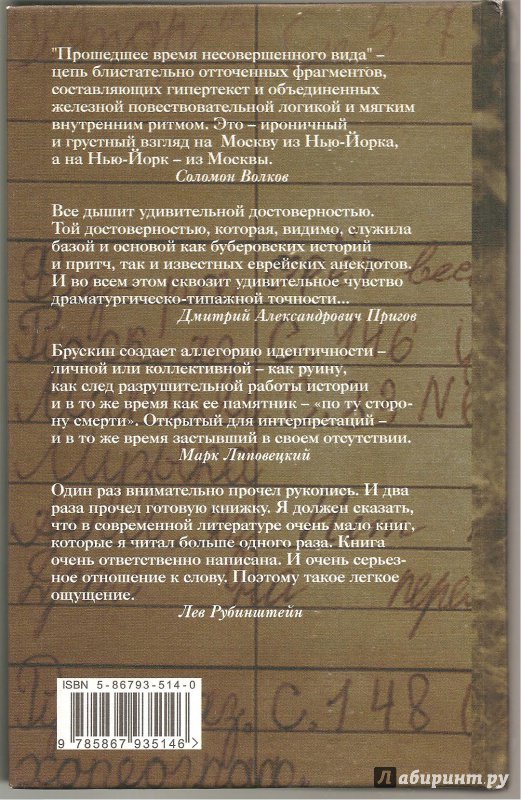 "Прошедшее время несовершенного вида" –
цепь блистательно отточенных фрагментов,
составляющих гипертекст и объединенных
железной повествовательной логикой и мягким
внутренним ритмом. Это – ироничный
и грустный взгляд на Москву из Нью-Йорка,
а на Нью-Йорк – из Москвы.
Соломон Волков
Все дышит удивительной достоверностью.
Той достоверностью, которая, видимо, служила
базой и основой как буберовских историй
и притч, так и известных еврейских анекдотов.
И во всем этом сквозит удивительное чувство
драматургическо-типажной точности...
Дмитрий Александрович Пригов
Брускин создает аллегорию идентичности –
личной или коллективной – как руину,
как след разрушительной работы истории
и в то же время как ее памятник – «по ту сторо-
ну смерти». Открытый для интерпретаций –
и в то же время застывший в своем отсутствии.
Марк Липовецкий
Один раз внимательно прочел рукопись. И два
раза прочел готовую книжку. Я должен сказать,
что в современной литературе очень мало книг,
которые я читал больше одного раза. Книга
очень ответственно написана. И очень серьез-
ное отношение к слову. Поэтому такое легкое
ощущение.
Лев Рубинштейн
С. 146
С. 148
хореограф.
ISBN 5-86793-514-0
9 785867 935146
Лабиринт.ру